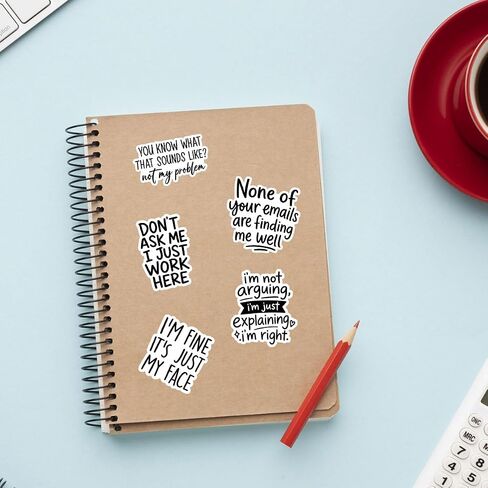 YOU KNOW WHAT
THAT SOUNDS LIKE?
not my problem
None of
your emails
are finding
me well
DON'T
ASK ME
I JUST
WORK
HERE
i'm not
arguing,
i'm just
explaining
i'm right.
I'M FINE
IT'S JUST
MY FACE
MRC
7
8
4
5
1
2